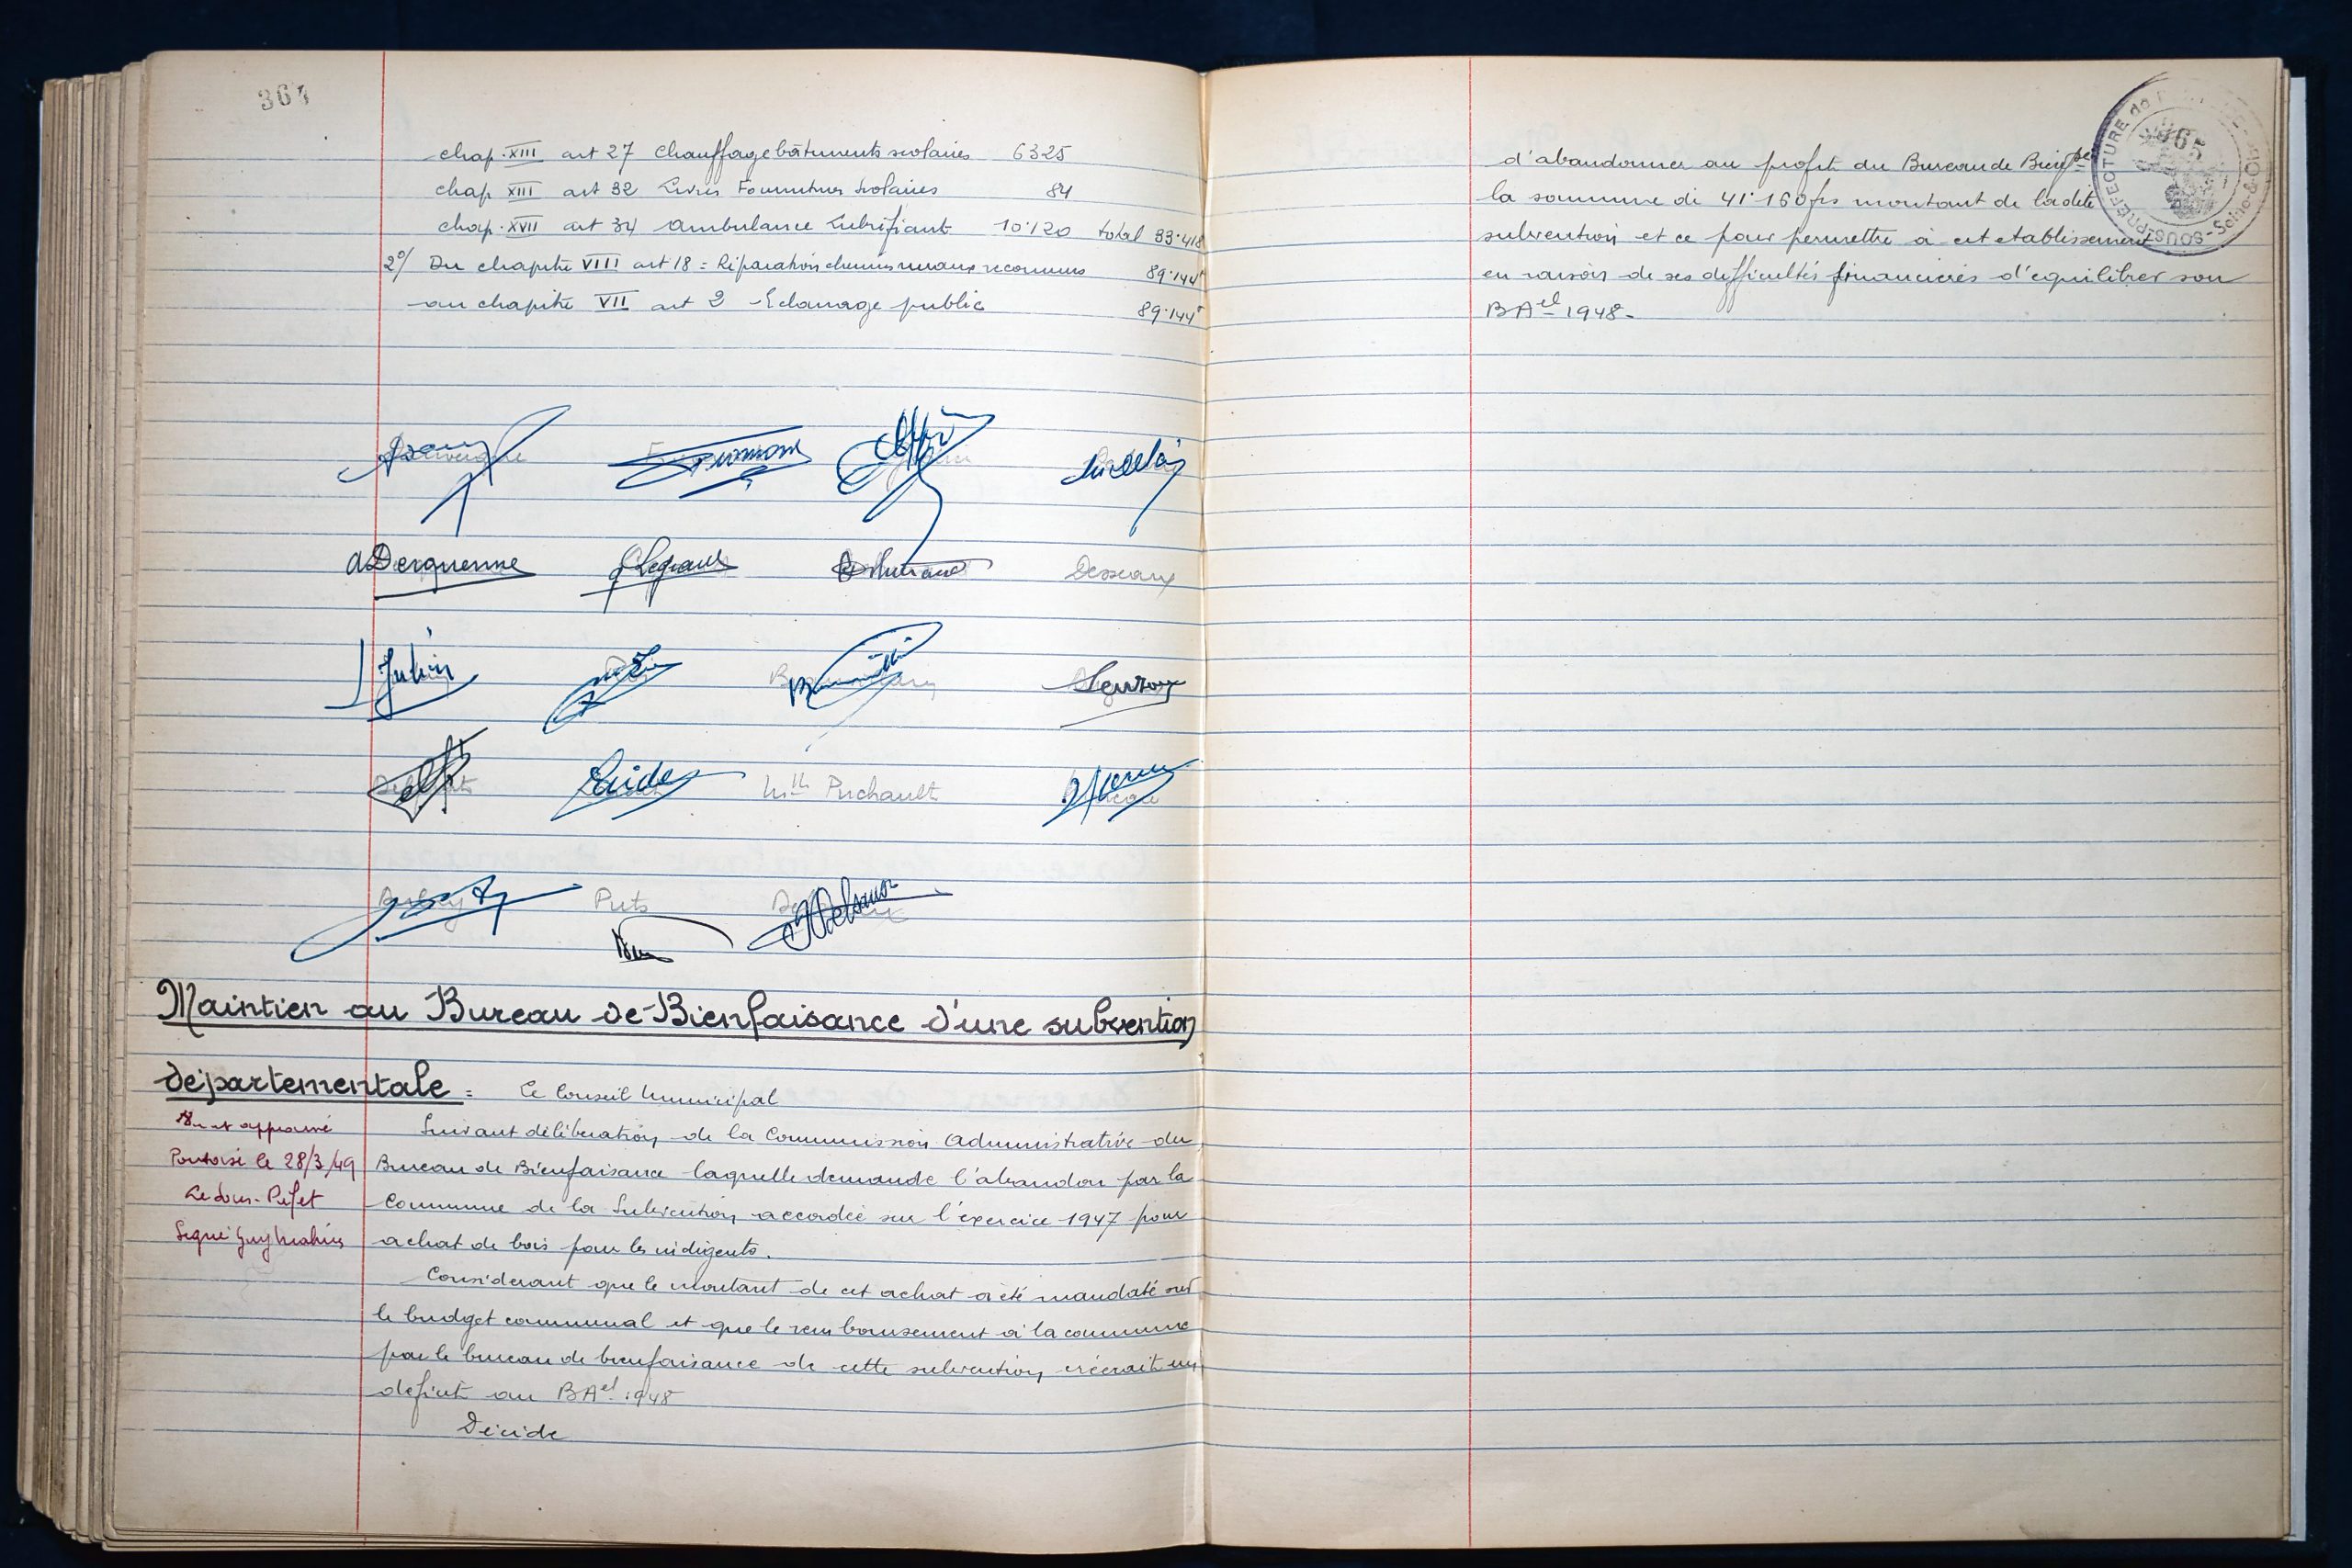 364
chap. XIII art 27 Chauffage bâtiments scolaires 6325
chap XIII art 32 Livres Fournitures Scolaires 84
chap. XVII art 34 Ambulance Lubrifiant 10.120 total 33.418
2°/ Du chapitre VIII art 18 = Réparation chemins ruraux reconnus 89.144
au chapitre VII art 2 Eclairage public 89.144
aDerquenne Legrand Desseaux
Julien Leuroy
Mlle Puchault
Puts
Maintien au Bureau de Bienfaisance d'une subvention
départementale = Le Conseil Municipal
Vu et approuvé
Pontoise le 28/3/49
Le Sous-Préfet
Signé Guy
Suivant délibération de la Commission Administrative du
Bureau de Bienfaisance laquelle demande l'abandon par la
Commune de la Subvention accordée sur l'exercice 1947 pour
achat de bois pour les indigents.
Considerant que le montant de cet achat a été mandaté sur
le budget communal et que le remboursement à la commune
par le bureau de bienfaisance de cette subvention créerait un
deficit au BAel 1948
Décide
365
SOUS-PRÉFECTURE de Seine-&-Oise
d'abandonner au profit du Bureau de
la somme de 41.160 frs montant de ladite
subvention et ce pour permettre à cet etablissement
en raison de ses difficultés financieres d'equilibrer son
BAel 1948-